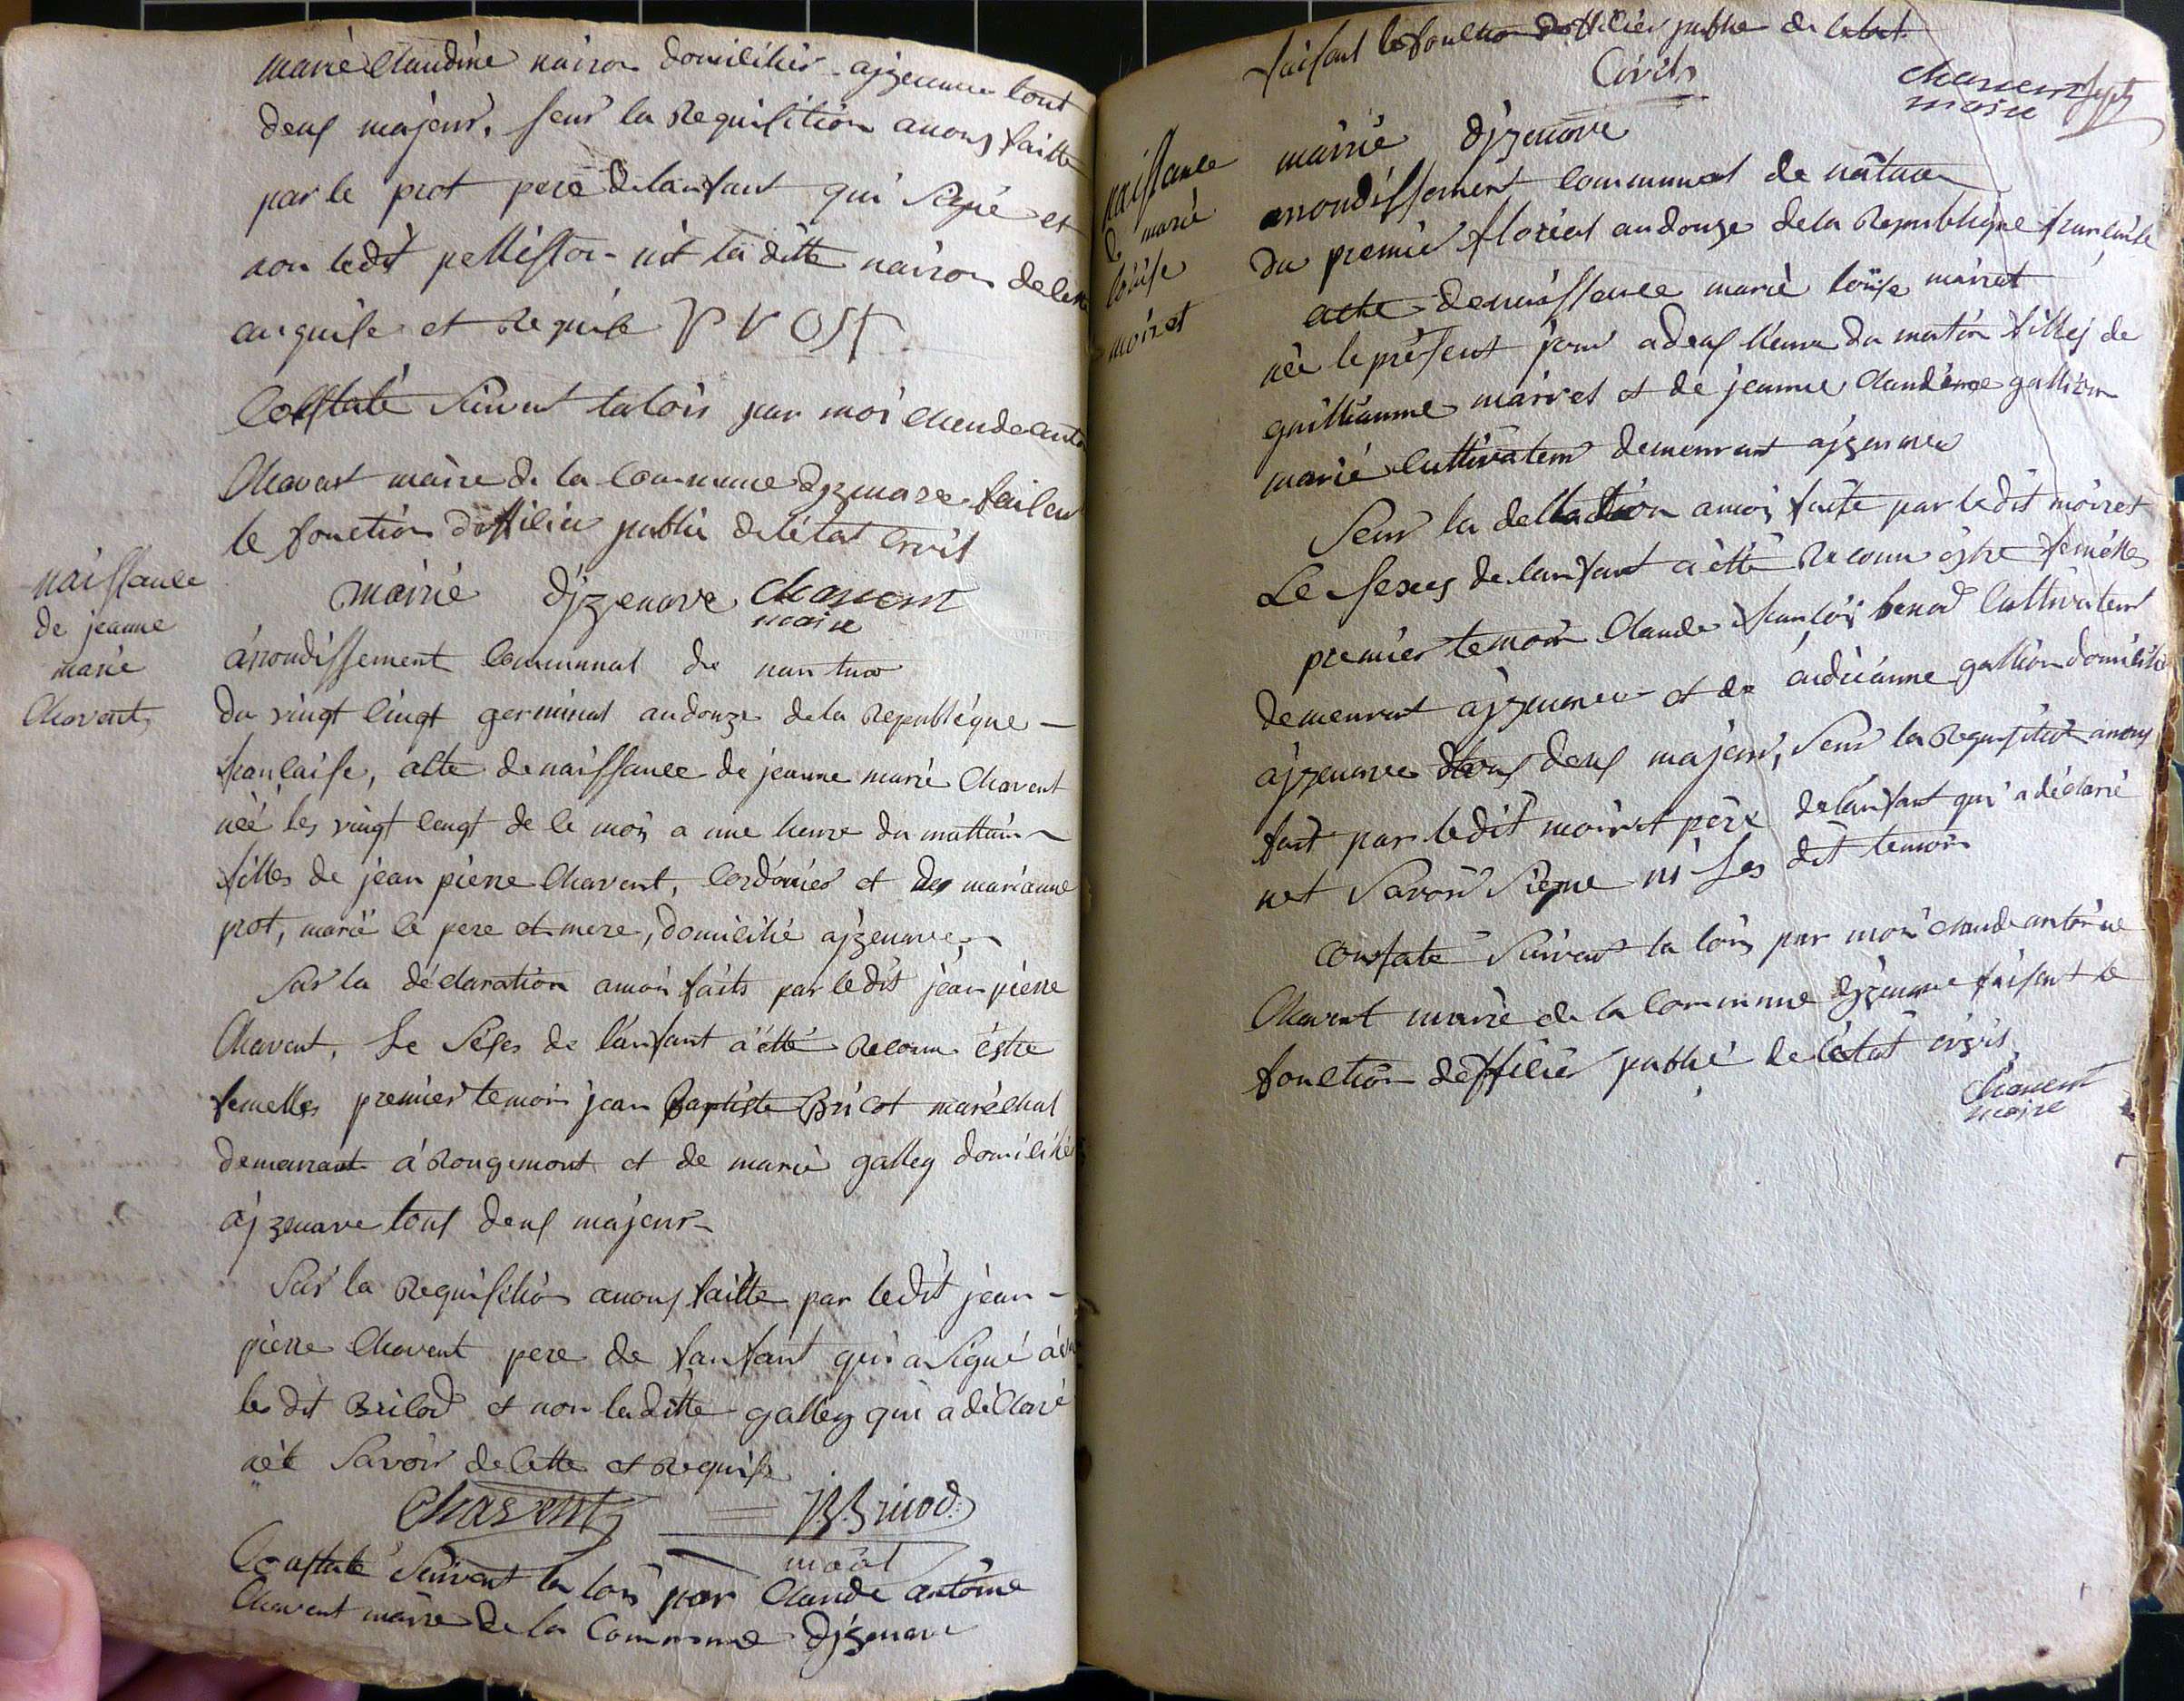 marié Claudine nairon domiciliés ajzenave tout
deus majeur, seur la Requisition anous faitte
par le prot pere de lanfant qui Signé et
non ledit pellisson nit la ditte nairon de
anquise et Requise P V OST
Constaté Suivant la loix par moi Claude anto
Chavent maire de la Commune djzenave faisan
le fonction dofficier public de létat Civil
mairié djzenave Chavent
maire
naissance
de jeanne
marie
Chavent
arrondissement Communal de nantua
du vingt Cinqt germinal andouze de la Republéque
francaise, acte de naissance de jeanne marie Chavent
néé les vingt Cinqt de le mois a une heure du mattin
filles de jean pierre Chavent, Cordonier et de marianne
prot, marié le pere et mere, domicilié ajzenave
Sur la déclaration amoi faits par ledit jean pierre
Chavent, Le Sexes de lanfant a étté Reconu éstre
femelles premier temoin jean Baptiste Bricot maréchal
demeurant á Rougemont et de marié galley domicilié
ajzenave tous deus majeur
Sur la Requisition anous faitte par ledit jean
pierre Chavent pere de lanfant qui a Signé
les dit Bricod et non laditte galley qui a déClaré
nét Savoir de Cette et Requise
Chavent J B Bricod
maal
Constaté Suivant la loix par Claude antoine
Chavent maire de la Commune djzenave
faisant les fonction dofficier public de letat
Civils
Chavent
maire
naissance
de marie
louise
moiret
mairié djzenave
arrondissement Communal de nantua
du premier floréal andouze de la Republique francaise
acte de naissance marié louise mairet
née le présent jour a deus heure du matin filles de
guilliaume mairet et de jeanne Claudine gallion
marié Cultivateur demeurant ajzenave
Seur la declaration amoi faite par ledit moiret
Le Sexes de lanfant a étté Reconu éstre femelles
premier temoin Claude francois benod Cultivateur
demeurant ajzenave et de andréanne gallion domicilié
ajzenave tous deus majeur, Seur la Requisition anous
fait par ledit moiret pére de lanfant qui a déclaré
net Savoir Signe ni Les dit temoin
constaté Suivant la loix par moi claude antoine
Chavent mairé de la Commune djzenave faisant le
fonction dofficier public de létat civils
Chavent
maire